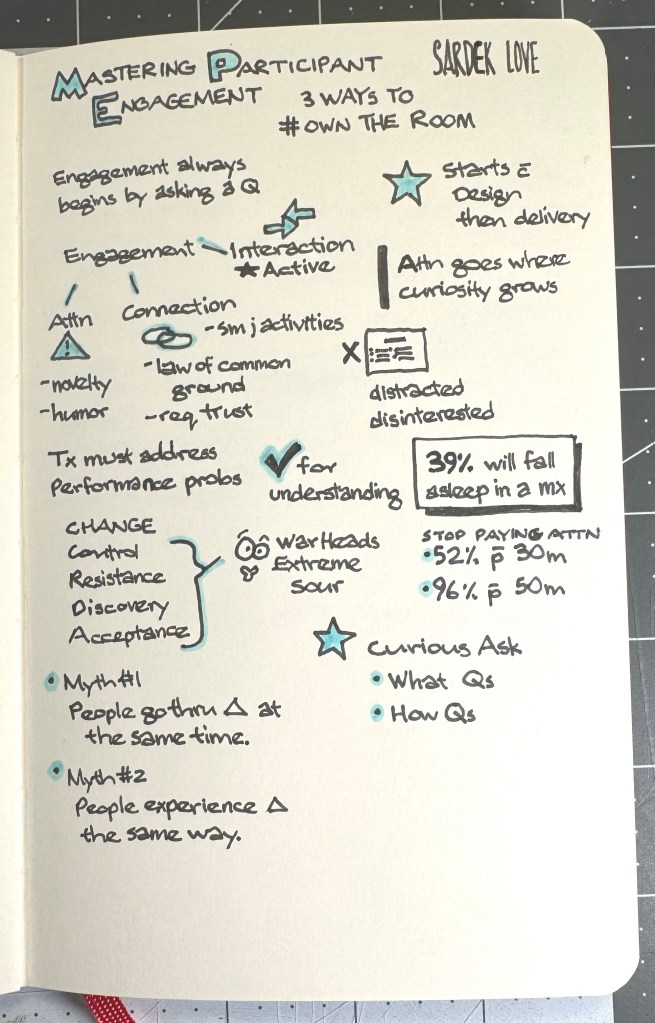 MASTERING PARTICIPANT
ENGAGEMENT
3 WAYS TO
#OWN THE ROOM
SARDEK LOVE
Engagement always
begins by asking a Q
Starts c̄
Design
then delivery
Engagement
Interaction
★ Active
Attn
-novelty
-humor
Connection
-smj activities
-law of common
ground
-req trust
Attn goes where
curiosity grows
X
distracted
disinterested
Tx must address
Performance probs
✓ for
understanding
39% will fall
asleep in a mx
CHANGE
Control
Resistance
Discovery
Acceptance
WarHeads
Extreme
Sour
STOP PAYING ATTN
•52% p̄ 30m
•96% p̄ 50m
Curious Ask
• What Qs
• How Qs
• Myth #1
People go thru Δ at
the same time.
• Myth #2
People experience Δ
the same way.